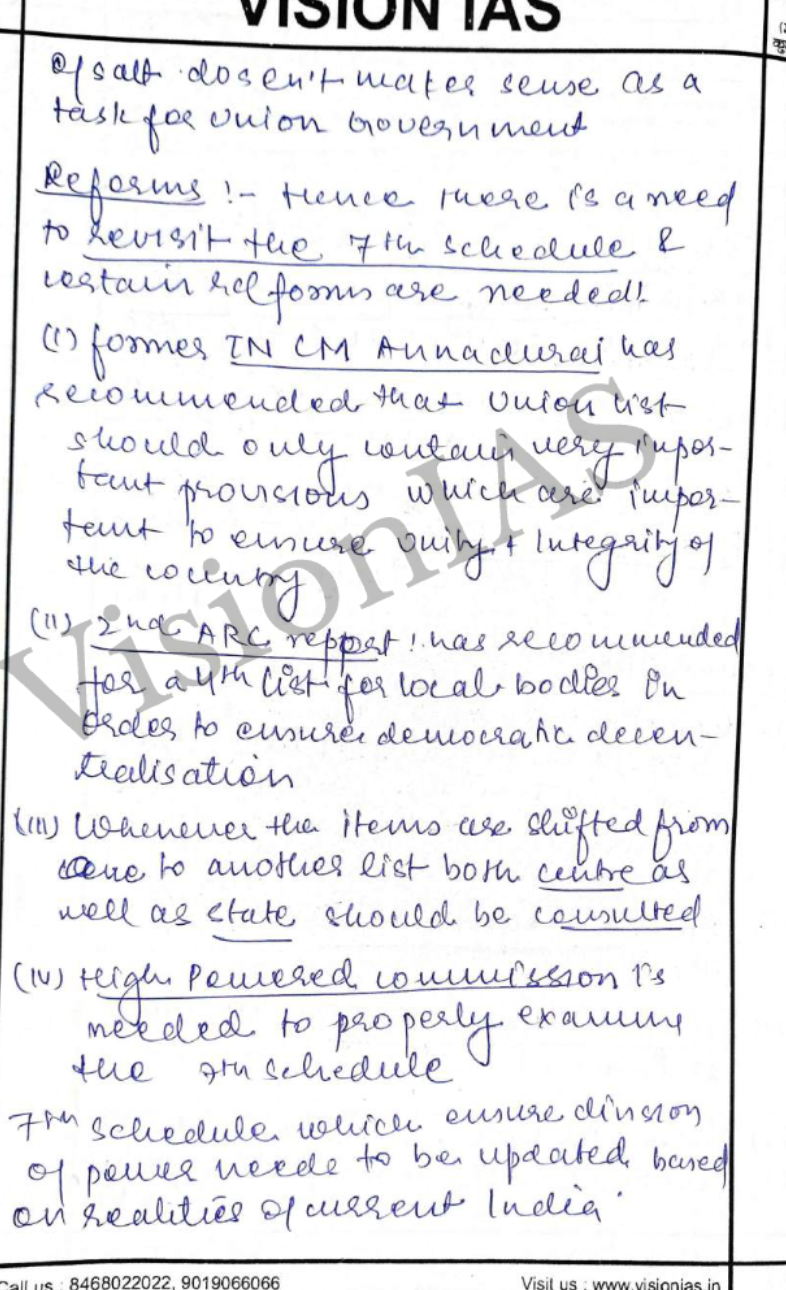 VISION IAS
of salt dosen't makes sense as a
task for Union Government
Reforms :- Hence there is a need
to revisit the 7th schedule &
certain reforms are needed:
(I) former TN CM Annadurai has
recommended that Union list
should only contain very impor-
tant provisions which are impor-
tant to ensure Unity + Integrity of
the country
(II) 2nd ARC report : has recommended
for a 4th list for local bodies in
order to ensure democratic decen-
tralisation
(III) Whenever the items are shifted from
one to another list both centre as
well as state should be consulted
(IV) High Powered commission is
needed to properly examine
the 7th schedule
7th schedule which ensure division
of power needs to be updated based
on realities of current India.
VisionIAS
Call us : 8468022022, 9019066066
Visit us : www.visionias.in